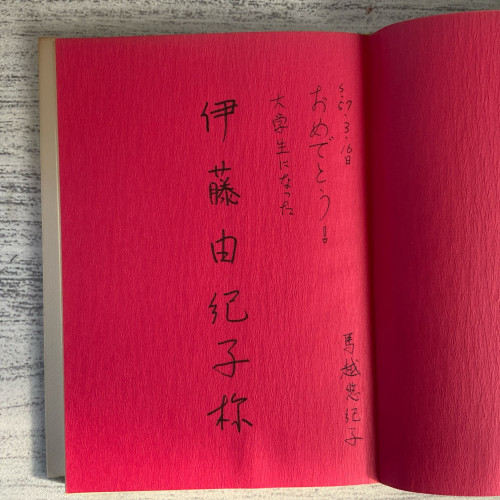 S.57.3.16日
おめでとう!!
大学生になった
伊藤由紀子様
馬越悠紀子